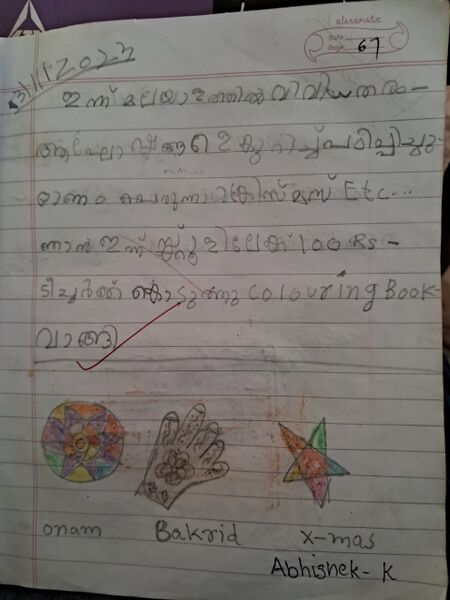 classmate
Date
Page 67
3/11/2023
ഇന്ന് മലയാളത്തിൽ വിവിധതരം-
ആഘോഷങ്ങളെ കുറിച്ച് പഠിപ്പിച്ചു-
ഓണം പെരുന്നാൾ ക്രിസ്മസ് Etc...
ഞാൻ ഇന്ന് സ്കൂളിലേക്ക് 100 Rs-
ടീച്ചർക്ക് കൊടുത്തു colouring Book-
വാങ്ങി
onam Bakrid x-mas
Abhishek-K